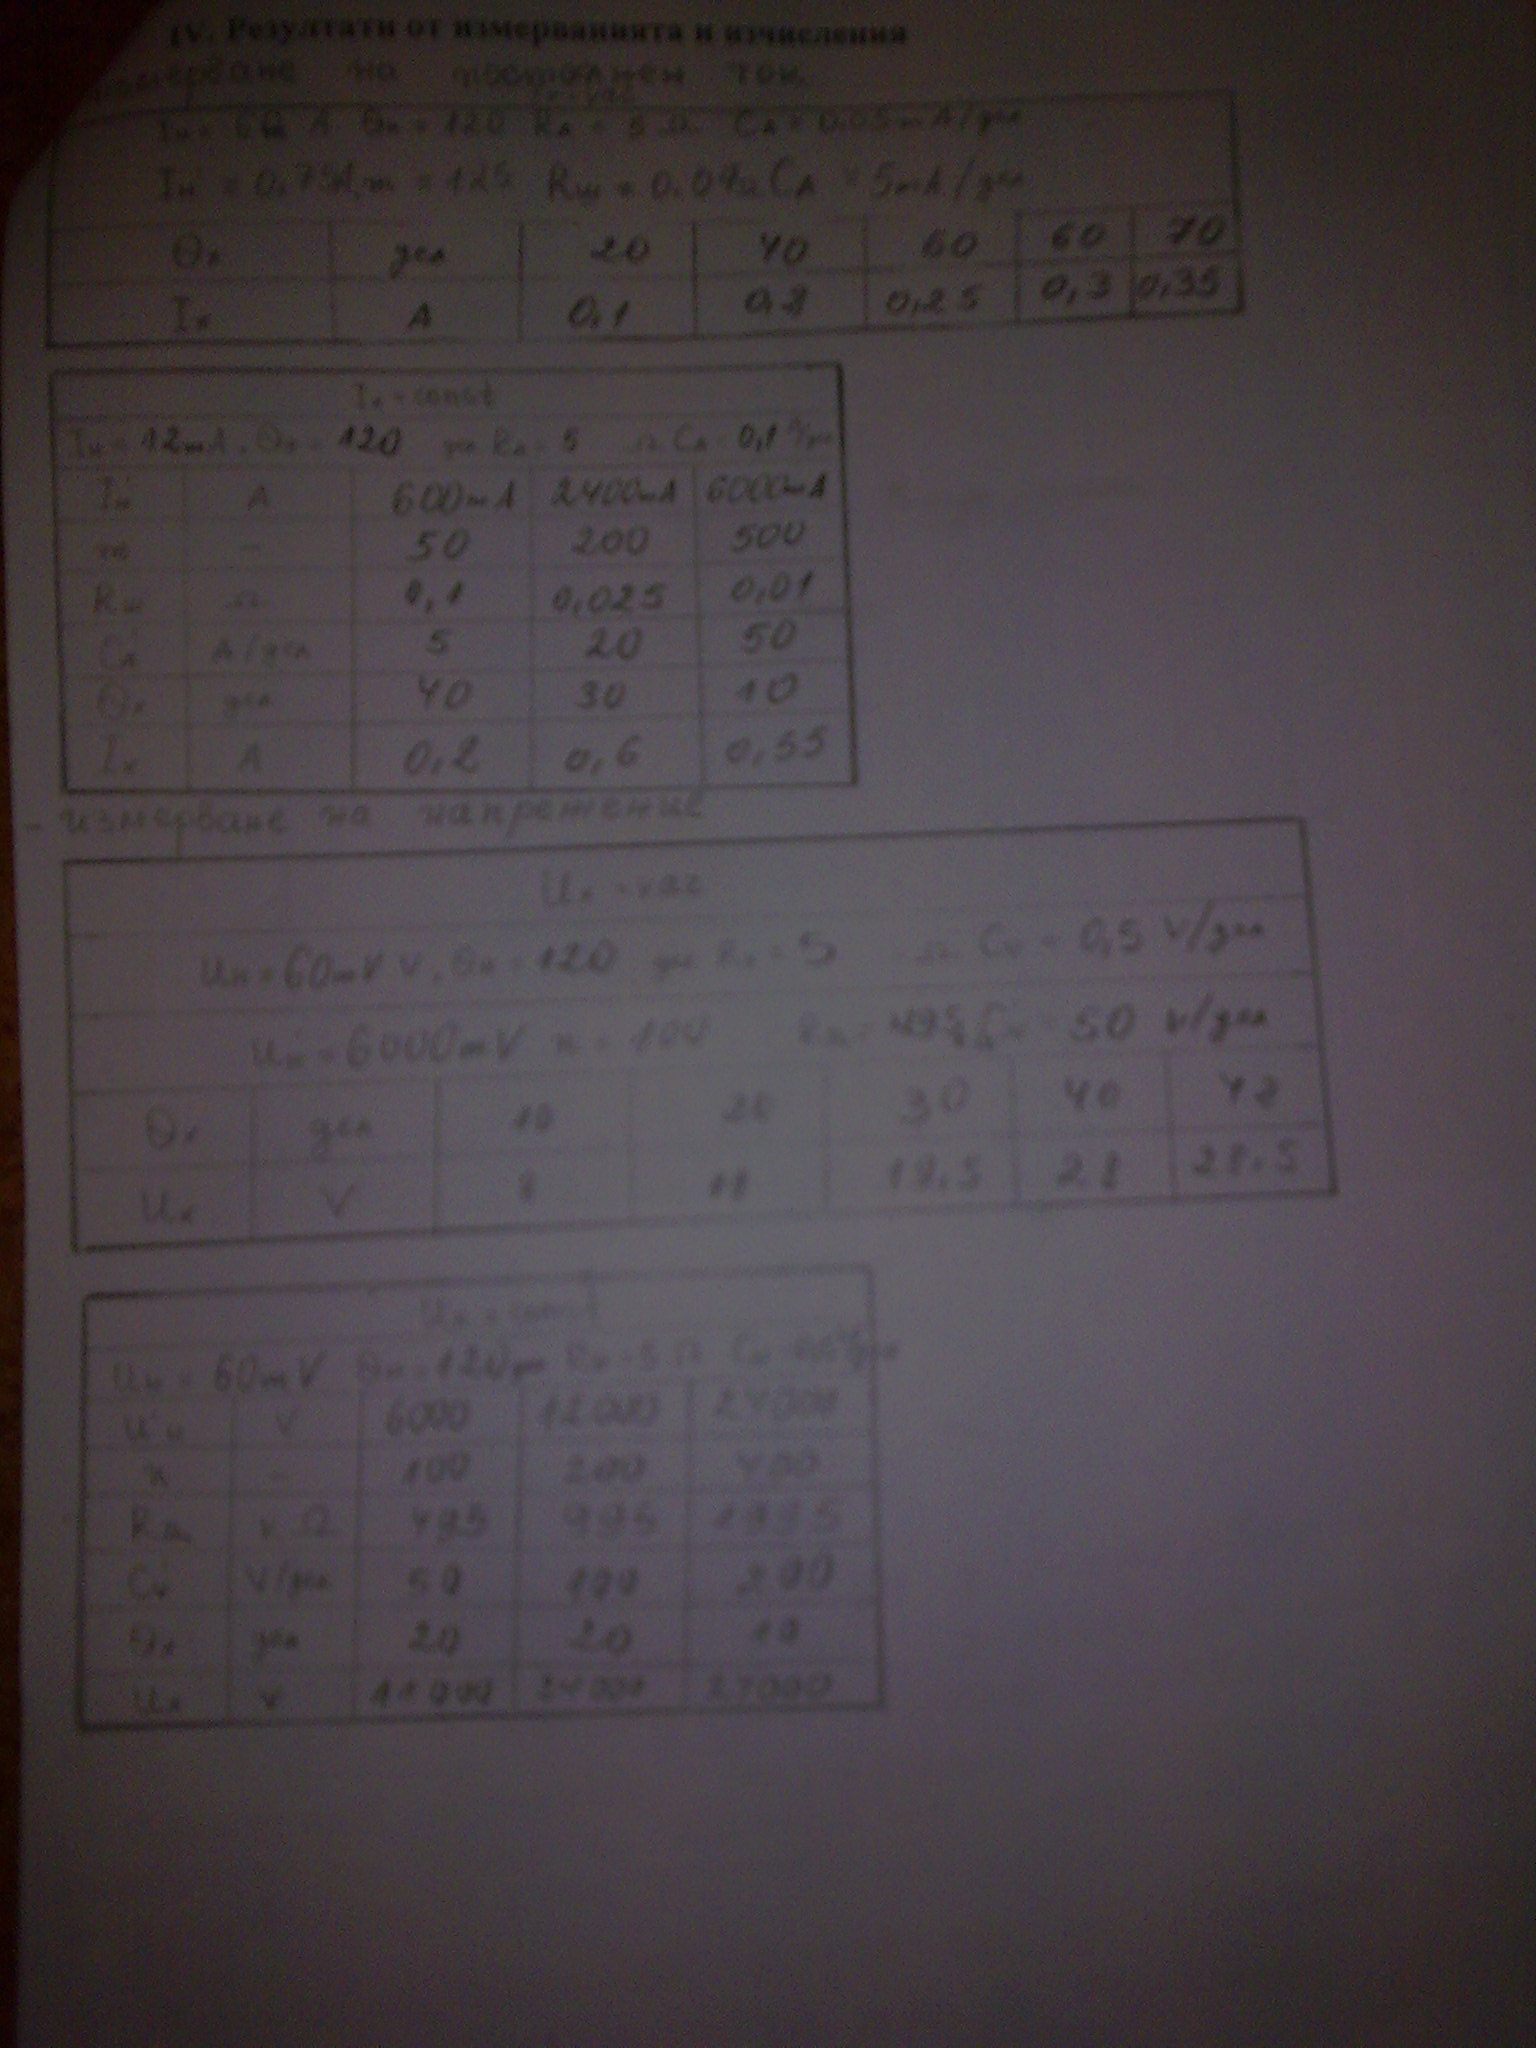 IV. Резултати от измерванията и изчисления
на постоянен ток
Θн = 120 Rа = 5 Ω Cа = 0.05 mA/дел
Iн' = 0,75 m = 125 Rш = 0.04 Ω Cа = 5mA/дел
Θx дел 20 40 60 60 70
Ix A 0,1 0,2 0,25 0,3 0,35
Ix = const
Iн = 12mA, Θн = 120 дел Rа = 5 Ω Cа = 0,1
Iн' A 600mA 2400mA 6000mA
m - 50 200 500
Rш Ω 0,1 0,025 0,01
Cа' A/дел 5 20 50
Θx дел 40 30 10
Ix A 0,2 0,6 0,55
- измерване на напрежение
Ux = var
Uн = 60mV V, Θн = 120 дел Rа = 5 Ω Cv = 0,5 V/дел
Uн' = 6000mV n = 100 Rд = 495 Ω Cv' = 50 V/дел
Θx дел 10 20 30 40 42
Ux V 18.5 28 28.5
Ux = const
Uн = 60mV Θн = 120 дел Rа = 5 Ω
U'н V 6000 12000 24000
- 100 200 400
Rд κ Ω 495 995 1995
Cv' V/дел 50 100 200
Θx дел 20 20 10
Ux V 11000 24000 27000